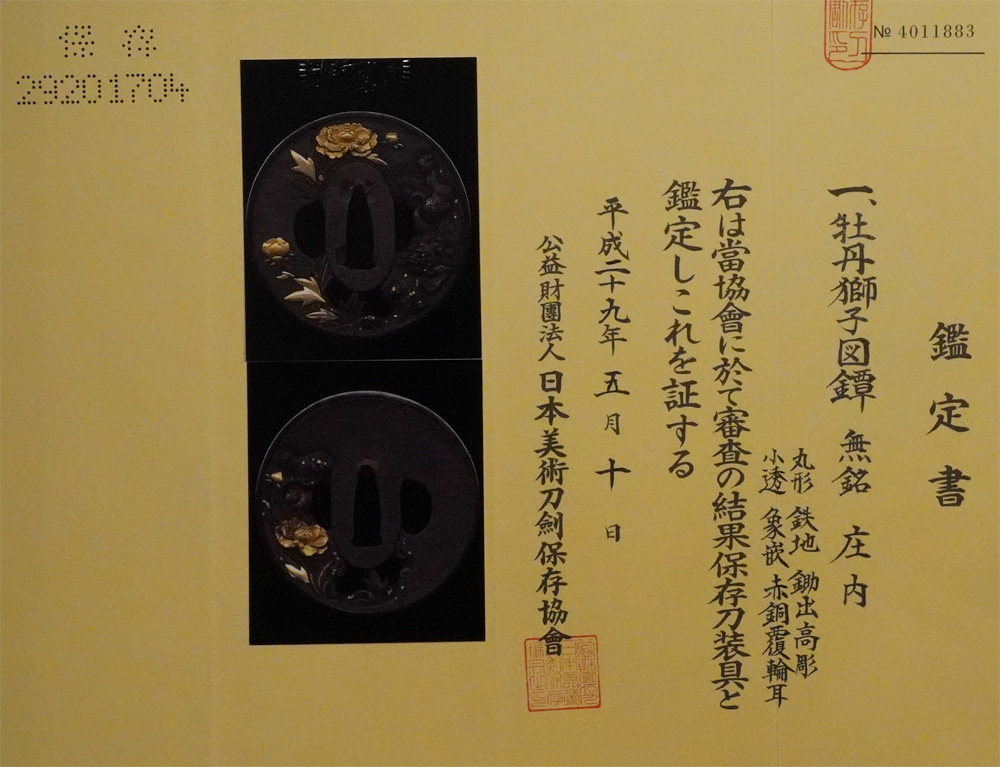 № 4011883
鑑定書
一、牡丹獅子図鐔 無銘 庄内
丸形 鉄地 鋤出高彫
小透 象嵌 赤銅覆輪耳
右は當協會に於て審査の結果保存刀装具と
鑑定しこれを証する
平成二十九年 五月 十日
公益財團法人 日本美術刀劍保存協會
保存
29201704